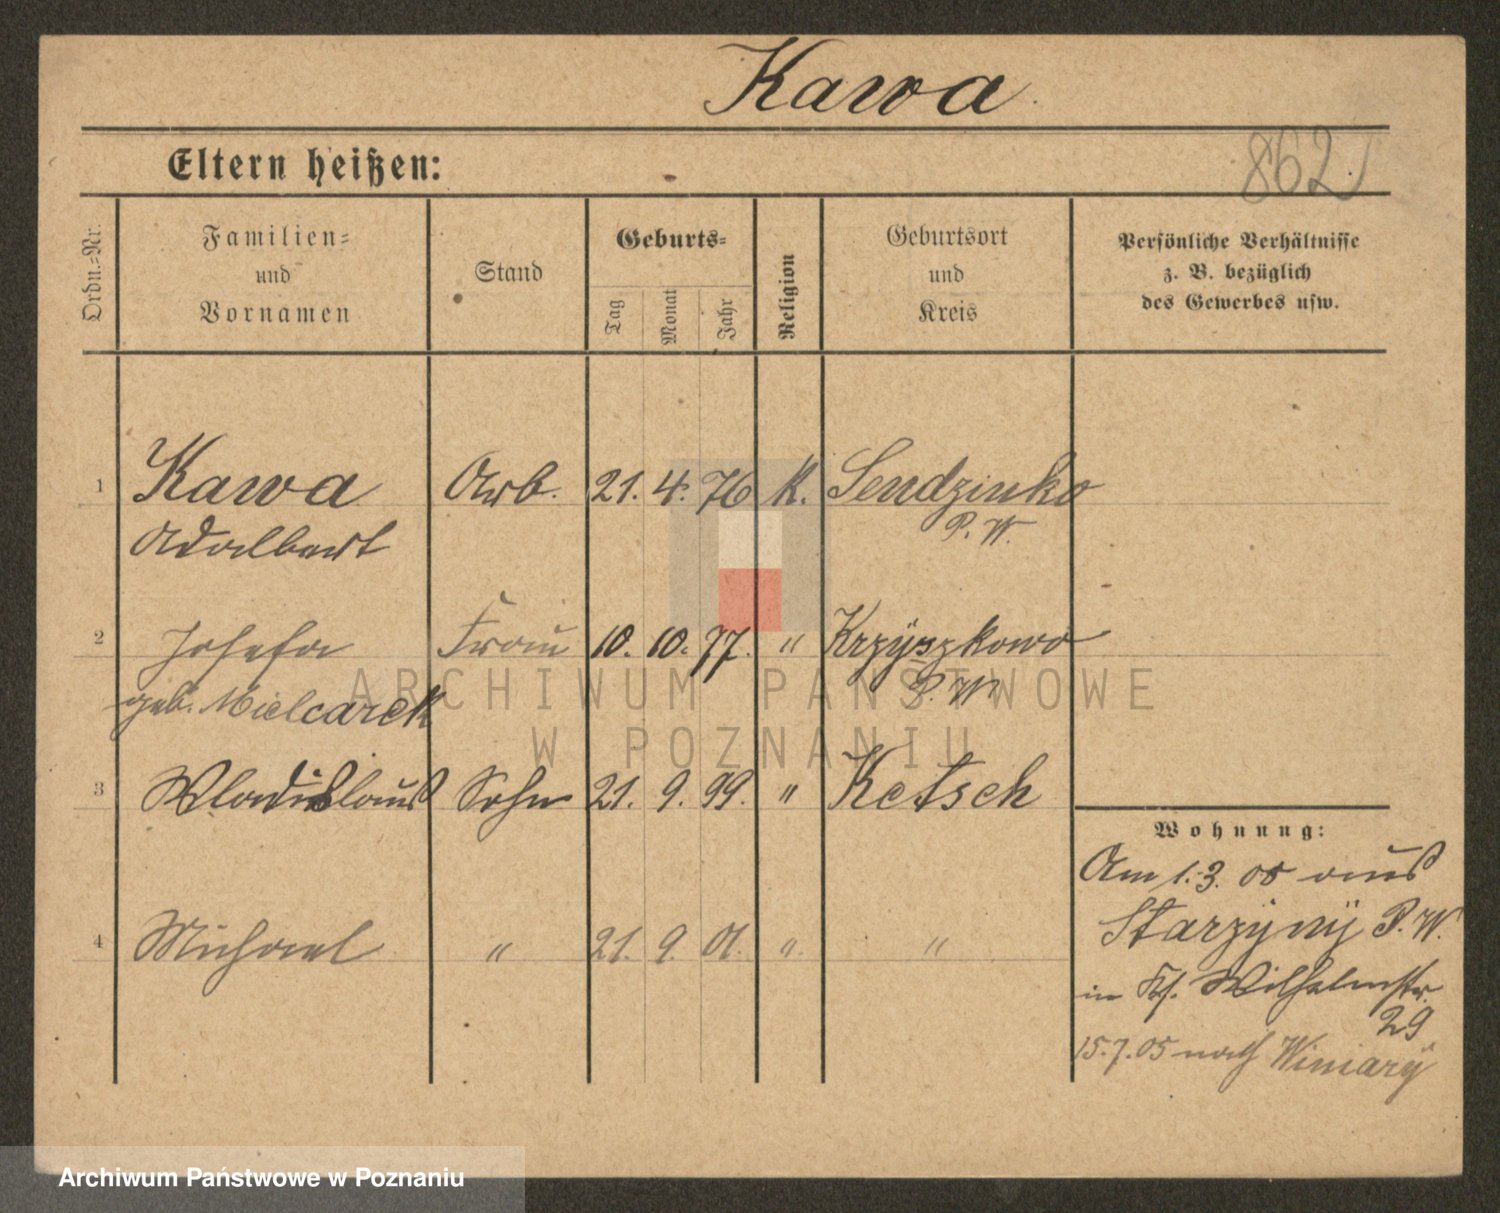 Kawa
Eltern heißen:
8621
Ordn.=Nr.
Familien=
und
Vornamen
Stand
Geburts=
Tag
Monat
Jahr
Religion
Geburtsort
und
Kreis
Persönliche Verhältnisse
z. B. bezüglich
des Gewerbes usw.
1 Kawa Arb. 21. 4. 76 K. Sendzinko
Adalbert P. W.
2 Josefa Frau 10. 10. 77. " Krzyszkowo
geb. Mielcarek P. W.
3 Wladislaus Sohn 21. 9. 99. " Ketsch
4 Michael " 21. 9. 01. " "
Wohnung:
Am 1.3.05 aus
Starzyny P. W.
in Kf. Wilhelmstr.
29
15.7.05 nach Winiary
ARCHIWUM PAŃSTWOWE
W POZNANIU
Archiwum Państwowe w Poznaniu